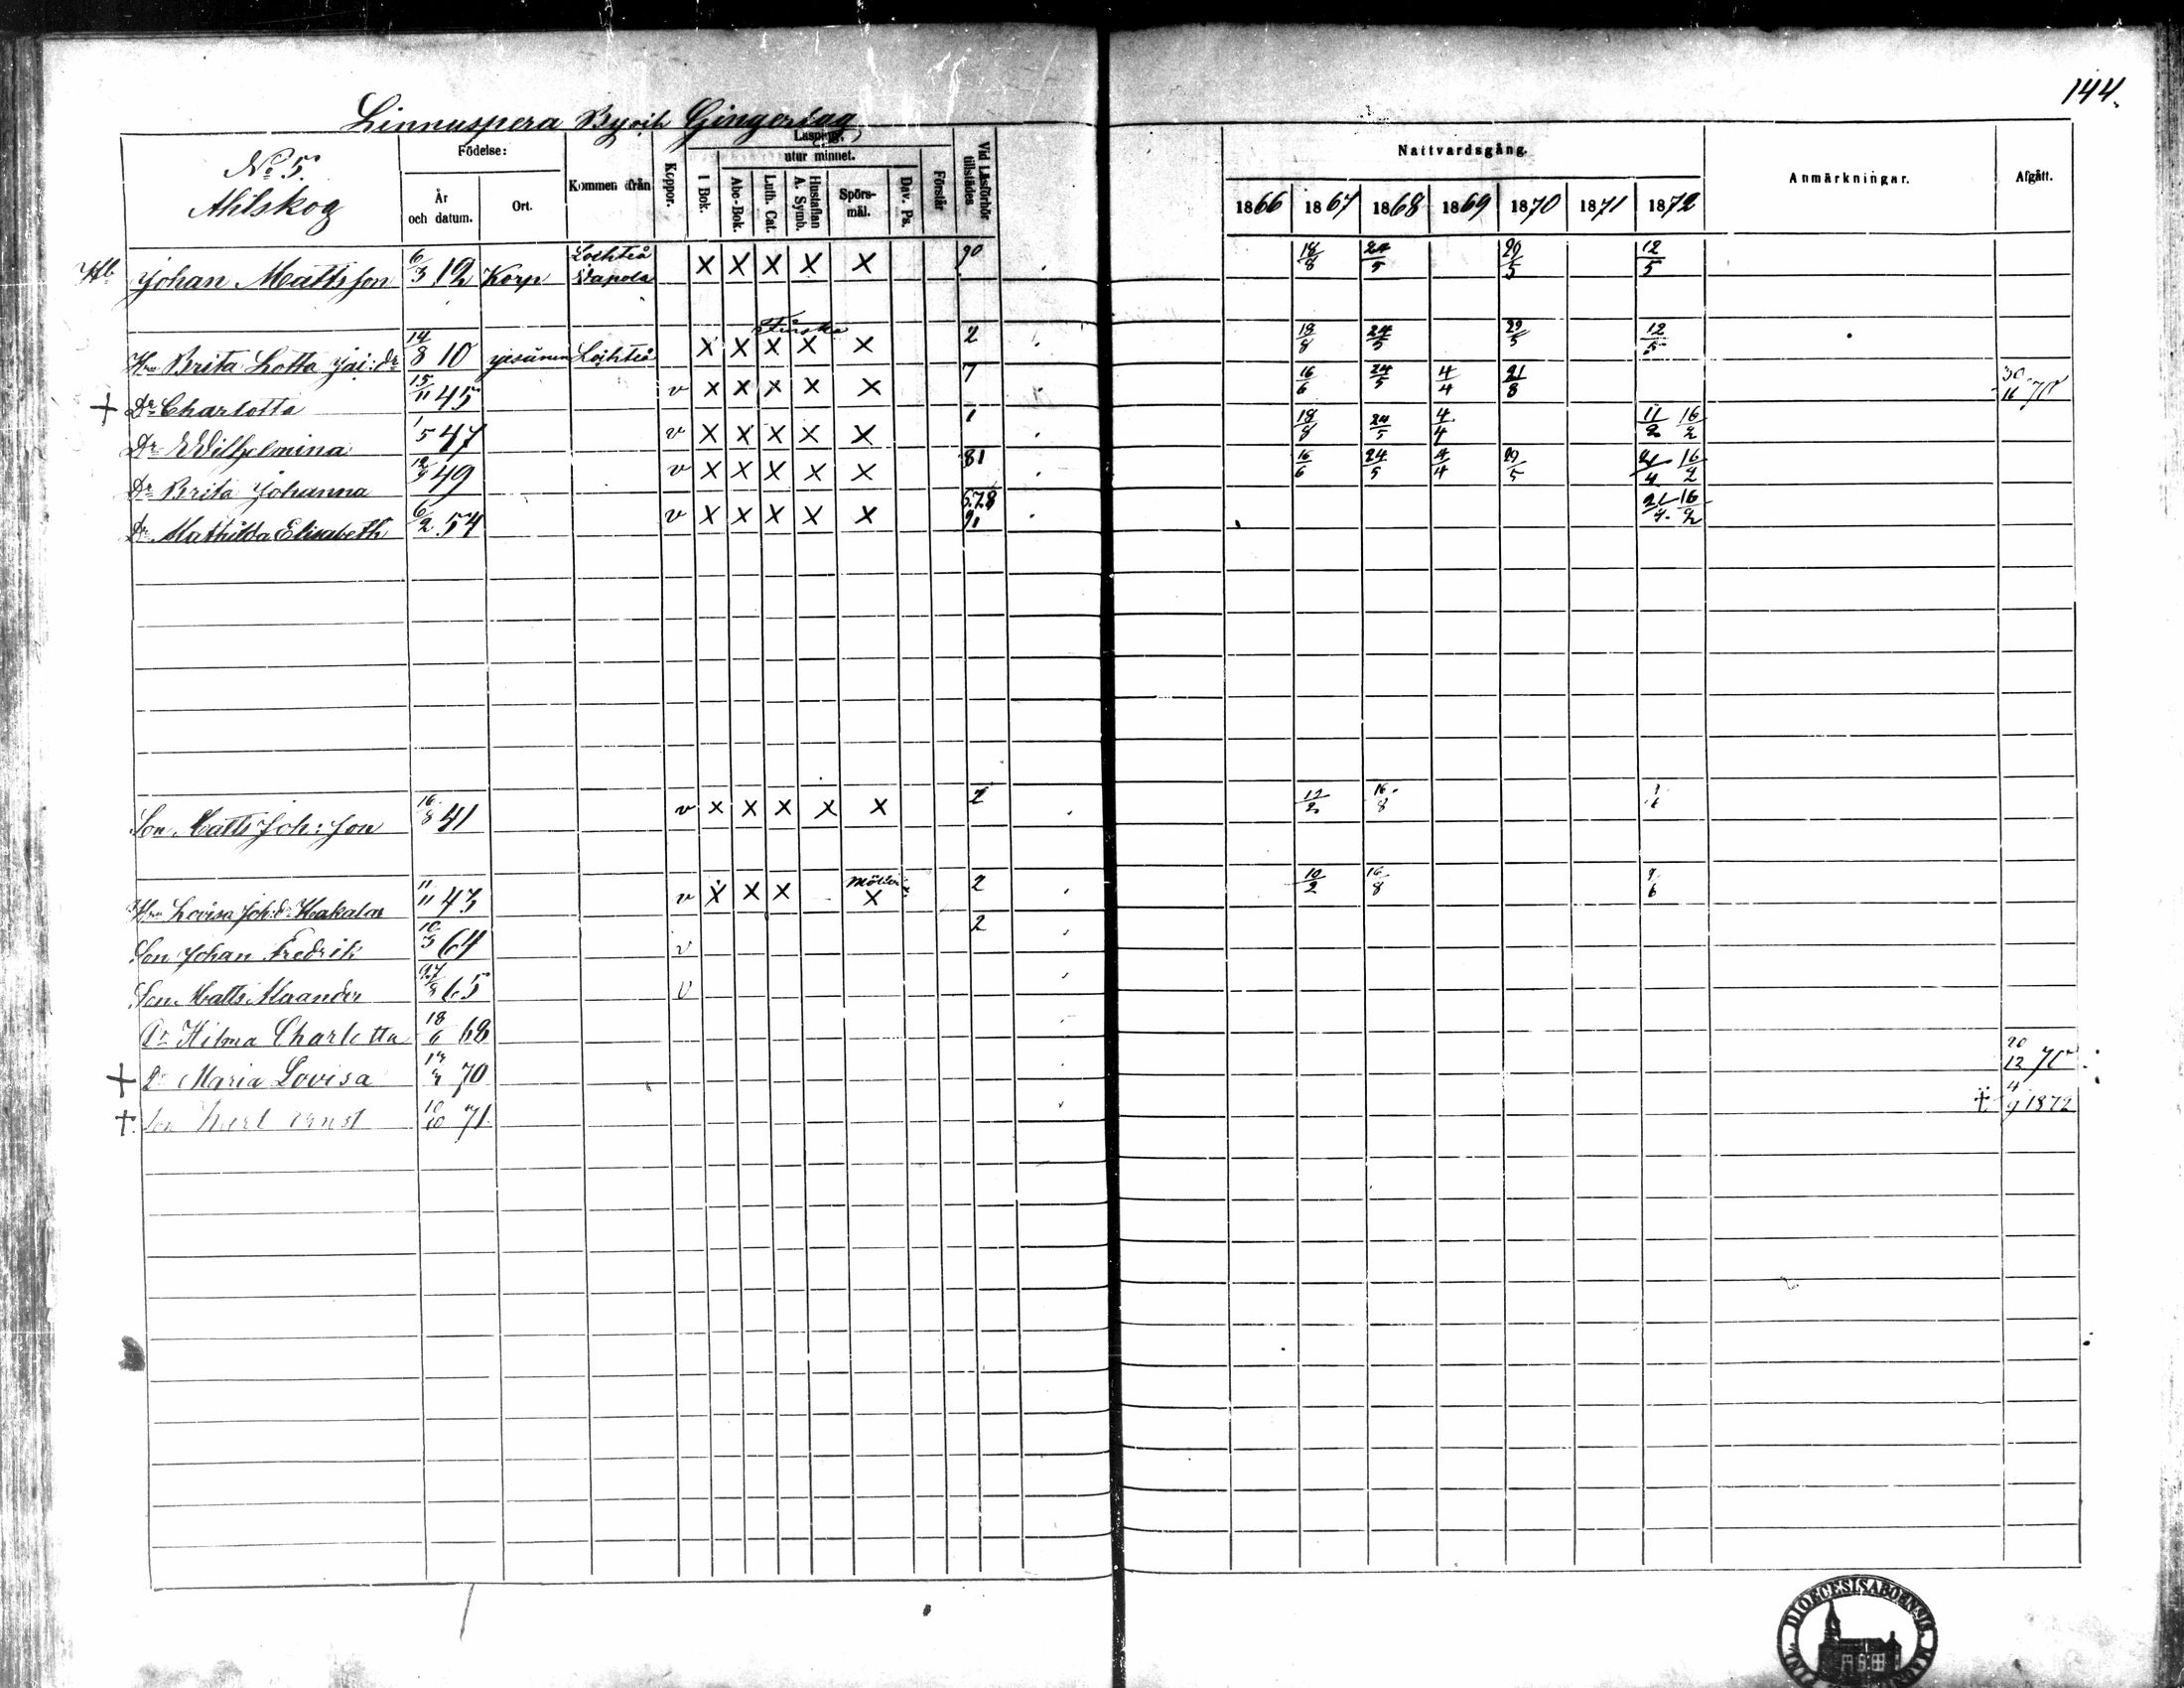 144.
Linnuspera Byoih Gingerlag
No 5.
Ahlskog
Födelse:
År
och datum.
Ort.
Kommen ifrån
Koppor.
Läsning,
utur minnet.
I Bok.
Abc-Bok.
Luth. Cat.
Hustaflan
A. Symb.
Spörs-
mål.
Dav. Ps.
Förstår
Vid Läsförhör
tillstädes
Nattvardsgång.
1866 1867 1868 1869 1870 1871 1872
Anmärkningar.
Afgått.
Johan Mattsson 6/3 12 Korp Lochteå X X X X X 90 18/8 24/5 29/5 12/5
Finska
Brita Lotta 14/8 10 Lochteå X X X X X 2 18/8 24/5 29/5 12/5
+ Dr Charlotta 15/11 45 v X X X X X 7 16/6 24/5 4/4 21/8 30/16 70
Dr Wilhelmina 1/5 47 v X X X X X 1 18/8 24/5 4/4 11/2 16/2
Dr Brita Johanna 12/9 49 v X X X X X 81 16/6 24/5 4/4 29/5 21/4 16/2
Dr Mathilda Elisabeth 6/2 54 v X X X X X 6.7.8 91 21/4 16/2
Son Matts Joh: son 16/8 41 v X X X X X 2 10/2 16/8 9/6
Hu Lovisa Joh: dr Hakala 11/11 43 v X X X X 2 10/2 16/8 9/6
Son Johan Fredrik 10/3 64 v 2
Son Matts Alexander 27/8 65 v
Dr Hilma Charlotta 18/6 68
+ Dr Maria Lovisa 70 20/12 70
+ Son Karl Ernst 10/10 71 + 4/9 1872
DIOECESIS ABOENSIS